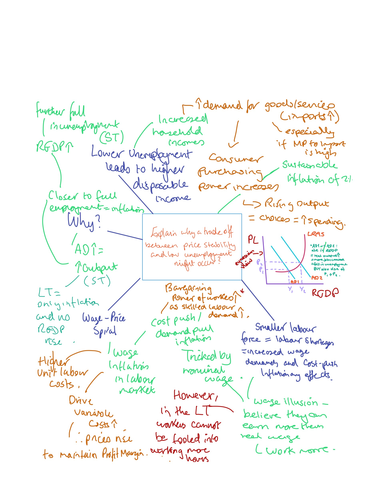 Explain why a trade off
between price stability
and low unemployment
might occur?
further fall
in unemployment
(ST)
RGDP↑
Closer to full
employment = inflation
Why?
AD↑ =
↑Output
(ST)
LT =
only inflation
and no
RGDP
rise.
Increased
household
incomes
Lower Unemployment
leads to higher
disposable
income
↑demand for goods/services
(imports↑)
especially
if MP to import
is high
Consumer
Purchasing
Power increases
Sustainable
inflation of 2%
→ Rising output
= choices = ↑spending.
PL
LRAS
AD1
P1
Y1
RGDP
Wage-Price
Spiral
Higher
Unit labour
costs.
Drive
variable
costs↑
∴ prices rise
to maintain Profit Margin.
Wage
inflation
in labour
market
Bargaining
Power of workers↑
as skilled labour
demand↑.
Cost push/
demand pull
inflation
Tricked by
nominal
wage.
However,
in the LT
workers cannot
be fooled into
working more
hours
Smaller labour
force = labour shortages
= increased wage
demands and cost-push
inflationary effects.
wage illusion -
believe they can
earn more than
real wage
work more.